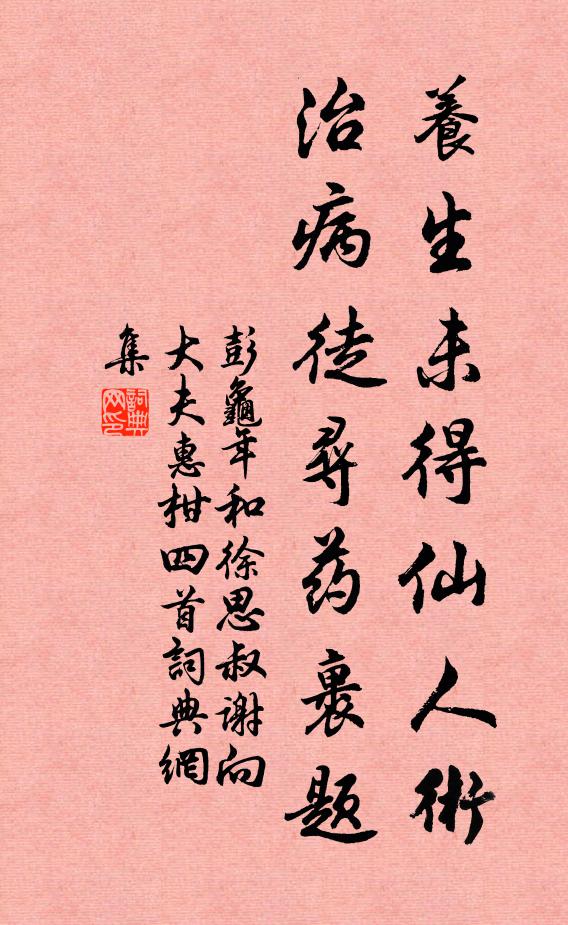 養生未得仙人術
治病徒尋药裹题
彭龜年和徐思叔谢向
大夫惠柑四首詞典網
集
詞典
网印